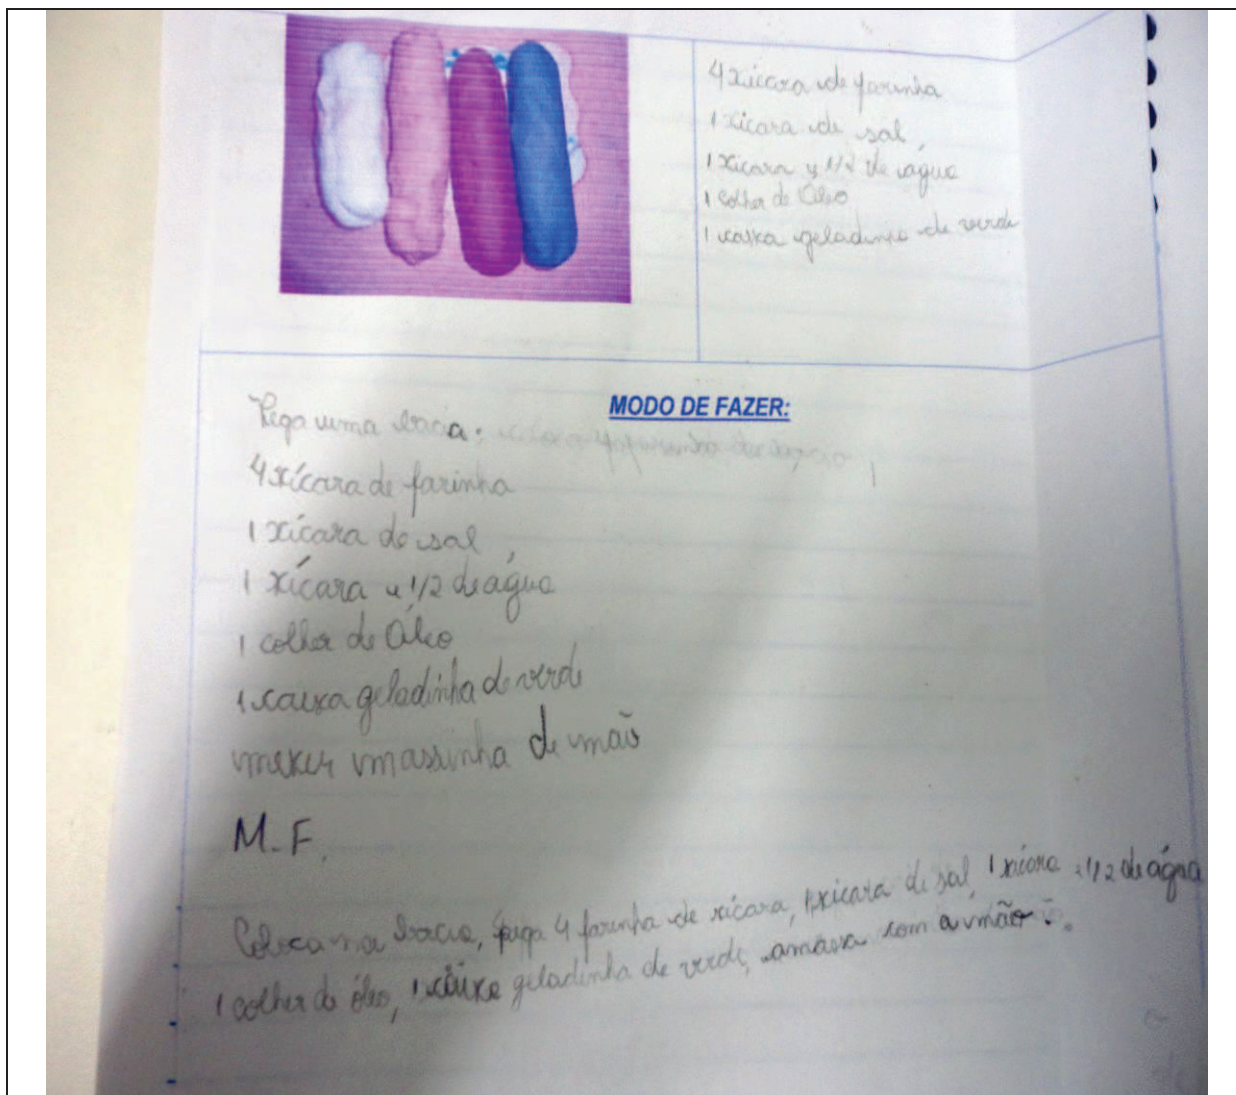 4 xícara de farinha
1 xícara de sal,
1 xícara y 1/2 de água
1 colher de Óleo
1 caixa geladinha de verde
MODO DE FAZER:
Pega uma bacia:
4 xícara de farinha
1 xícara de sal,
1 xícara e 1/2 de água
1 colher de Óleo
1 caixa geladinha de verde
mexer massinha de mão
M.F.
Coloca na bacia, pega 4 farinha de xícara, 1 xícara de sal, 1 xícara e 1/2 de água
1 colher de óleo, 1 caixa geladinha de verde, amassa com a mão.